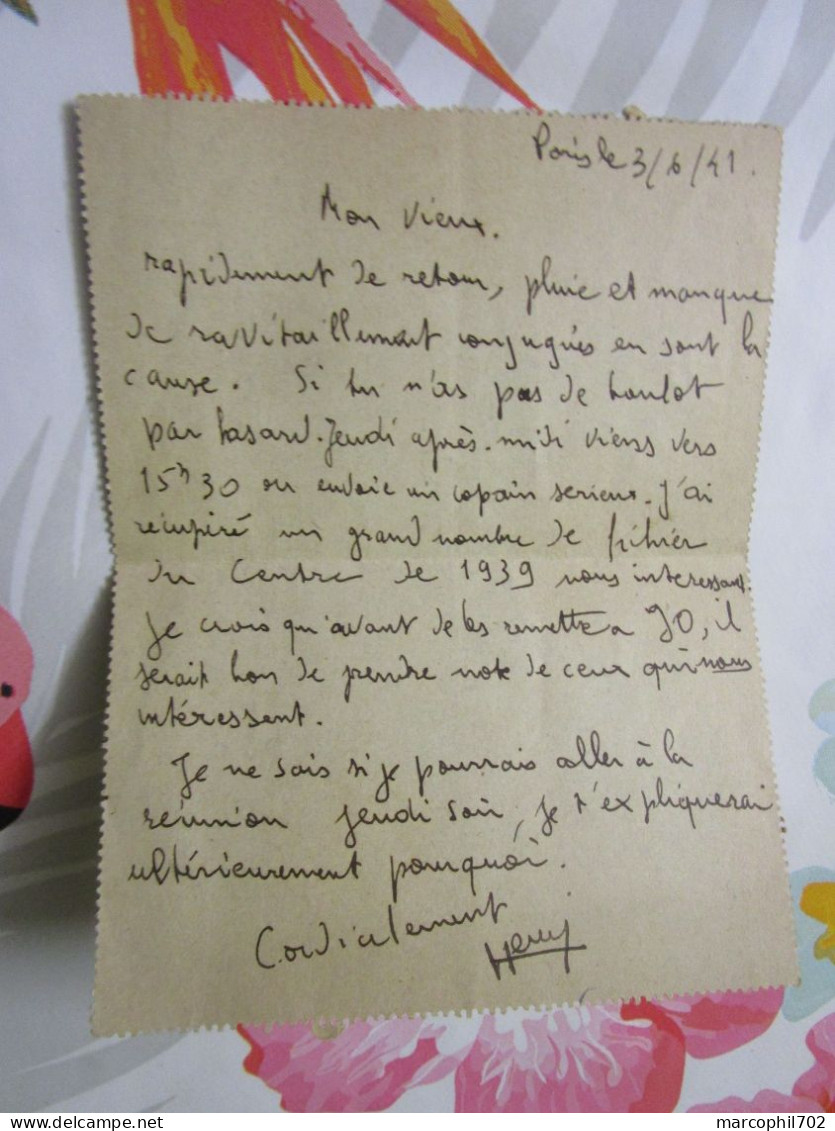 Paris le 3/6/41.
Mon vieux.
rapidement de retour, pluie et manque
de ravitaillement conjugués en sont la
cause. Si tu n'as pas de boulot
par hasard. Jeudi après-midi viens vers
15h30 ou envoie un copain serieux. J'ai
récupéré un grand nombre de fichier
du Centre de 1939 nous interessant.
Je crois qu'avant de les remettre a JO, il
serait bon de prendre note de ceux qui nous
intéressent.
Je ne sais si je pourrais aller à la
réunion jeudi soir, je t'expliquerai
ultérieurement pourquoi.
Cordialement
marcophil702